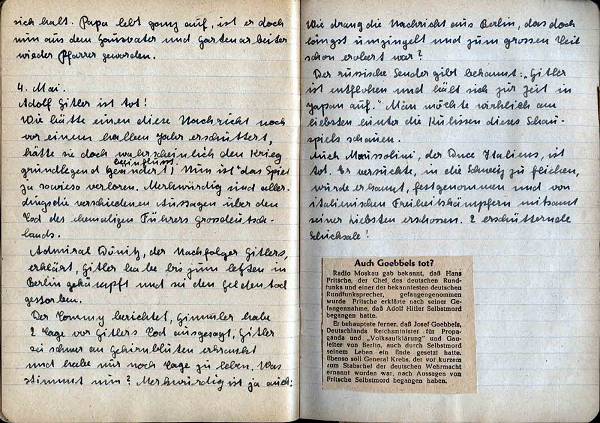 sich halt. Papa lebt ganz auf, ist er doch
nun aus dem Hausvater und Gartenarbeiter
wieder Pfarrer geworden.
4. Mai.
Adolf Hitler ist tot!
Wie hätte einen diese Nachricht noch
vor einem halben Jahr erschüttert,
hätte sie doch wahrscheinlich den Krieg
grundlegend geändert! Nun ist das Spiel
beeinflusst
ja sowieso verloren. Merkwürdig sind aller-
dings die verschiedenen Aussagen über den
Tod des ehemaligen Führers Grossdeutsch-
lands.
Admiral Dönitz, der Nachfolger Hitlers,
erklärt, Hitler habe bis zum letzten in
Berlin gekämpft und sei den Heldentod
gestorben.
Der Tommy berichtet, Himmler habe
2 Tage vor Hitlers Tod ausgesagt, Hitler
sei schwer an Gehirnbluten erkrankt
und habe nur noch Tage zu leben. Was
stimmt nun? Merkwürdig ist ja auch:
Wie drang die Nachricht aus Berlin, das doch
längst umzingelt und zum grossen Teil
schon erobert war?
Der russische Sender gibt bekannt: „Hitler
ist entflohen und hält sich zur Zeit in
Japan auf.“ Man möchte wirklich am
liebsten hinter die Kulissen dieses Schau-
spiels schauen.
Auch Moussolini, der Duce Italiens, ist
tot. Er versuchte, in die Schweiz zu fliehen,
wurde erkannt, festgenommen und von
italienischen Freiheitskämpfern mitsamt
seiner Liebsten erschossen. 2 erschütternde
Schicksale!
Auch Goebbels tot?
Radio Moskau gab bekannt, daß Hans
Fritsche, der Chef des deutschen Rund-
funks und einer der bekanntesten deutschen
Rundfunksprecher, gefangengenommen
wurde Fritsche erklärte nach seiner Ge-
fangennahme, daß Adolf Hitler Selbstmord
begangen hatte.
Er behauptete ferner, daß Josef Goebbels,
Deutschlands Reichsminister für Propa-
ganda und „Volksaufklärung“ und Gau-
leiter von Berlin, auch durch Selbstmord
seinem Leben ein Ende gesetzt hatte.
Ebenso soll General Krebs, der vor kurzem
zum Stabschef der deutschen Wehrmacht
ernannt worden war, nach Aussagen von
Fritsche Selbstmord begangen haben.